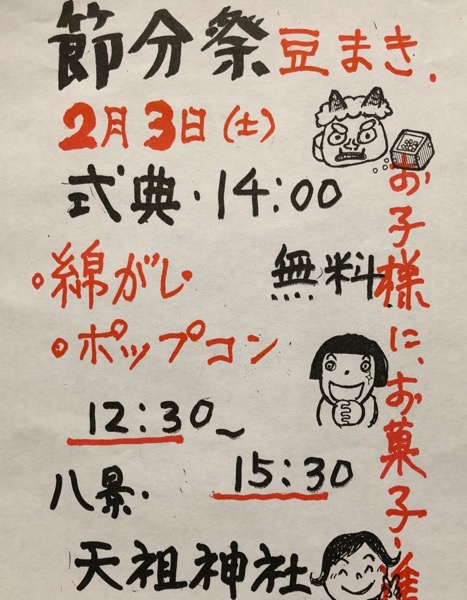 節分祭 豆まき.
2月3日(土)
式典・14:00
・綿がし 無料
・ポップコン
12:30~
15:30
八景・
天祖神社
お子様に、お菓子・